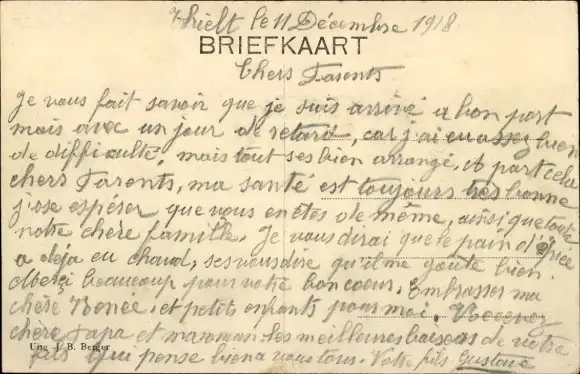 Thielt le 11 Décembre 1918
BRIEFKAART
Chers Parents
Je vous fait savoir que je suis arrivé a bon port
mais avec un jour de retard, car j'ai eu assez bien
de difficulté, mais tout ses bien arrangé, et part cela
chers Parents, ma santé est toujours très bonne
j'ose espérer que vous en êtes de même, ainsi que toute
notre chère famille. Je vous dirai que le pain d'épice
a déja eu chaud, ses vous dire qu'il me goute bien.
Merci beaucoup pour votre bon coeur. Embrasser ma
chère Renée, et petits enfants pour moi. Recevez
chère Papa et maman les meilleures baisers de votre
fils qui pense bien a vous tous. Votre fils Gustave
Uitg. J. B. Berger